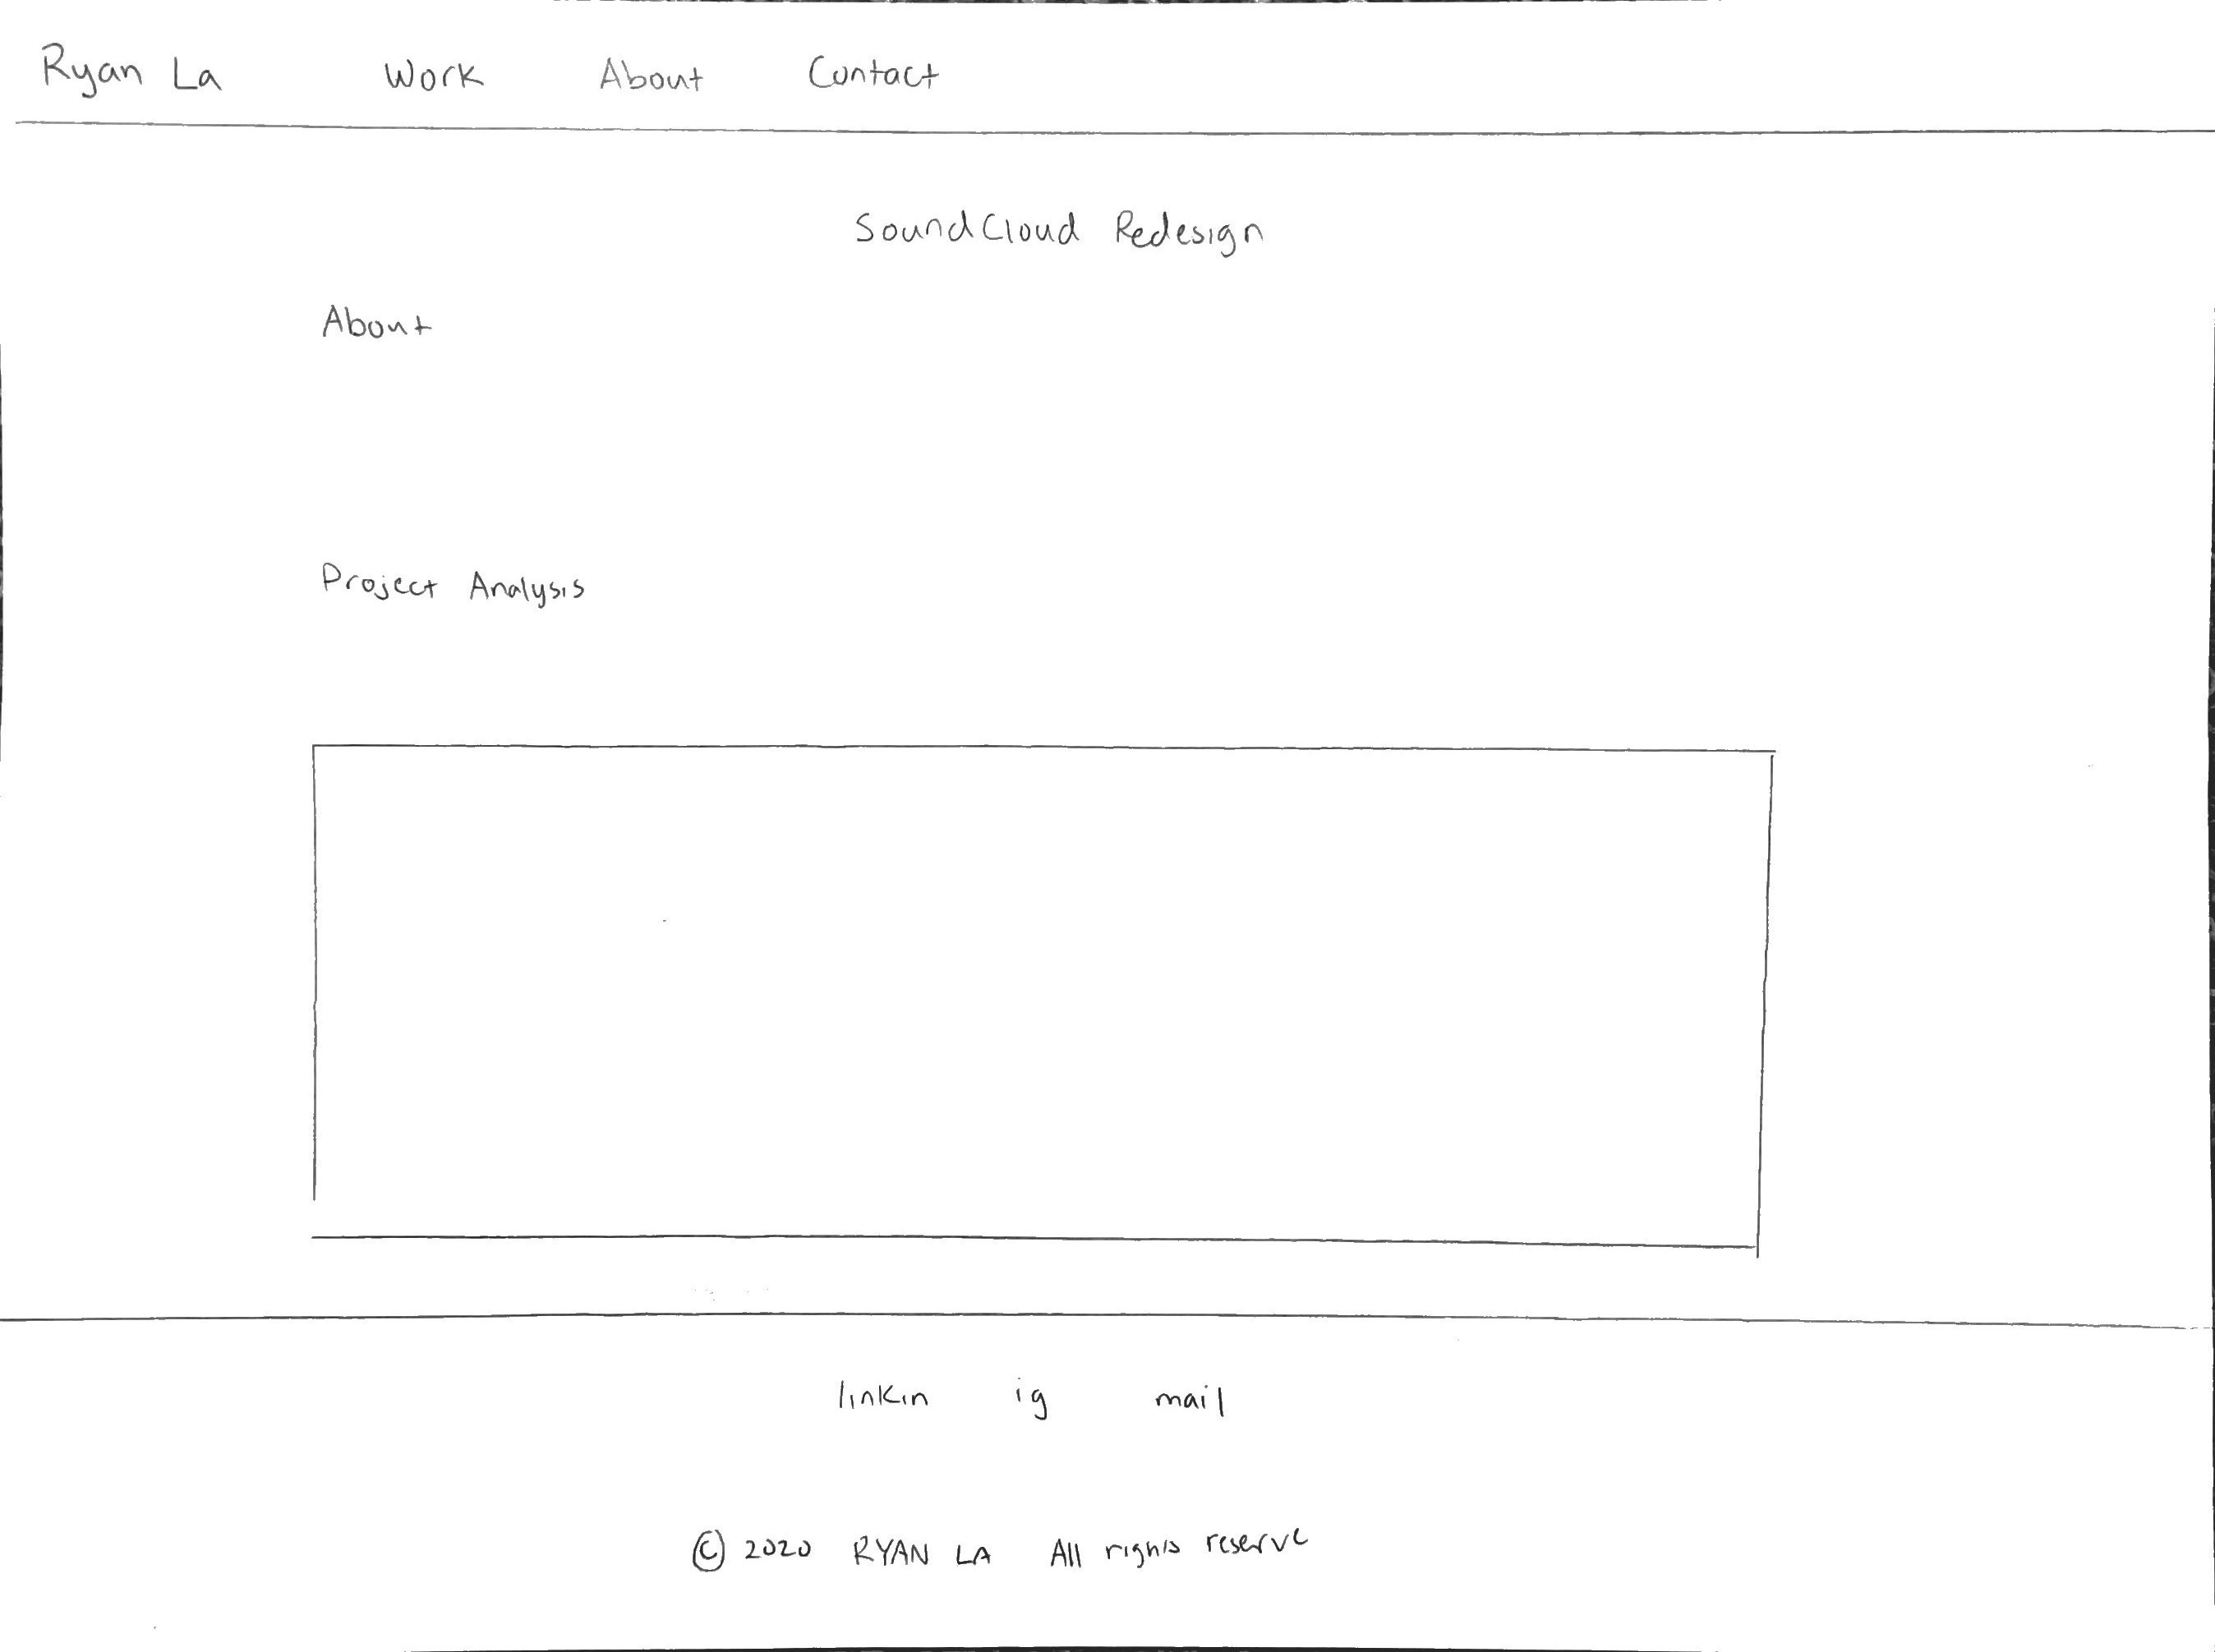 Ryan La Work About Contact
SoundCloud Redesign
About
Project Analysis
linkin ig mail
© 2020 RYAN LA All rights reserve